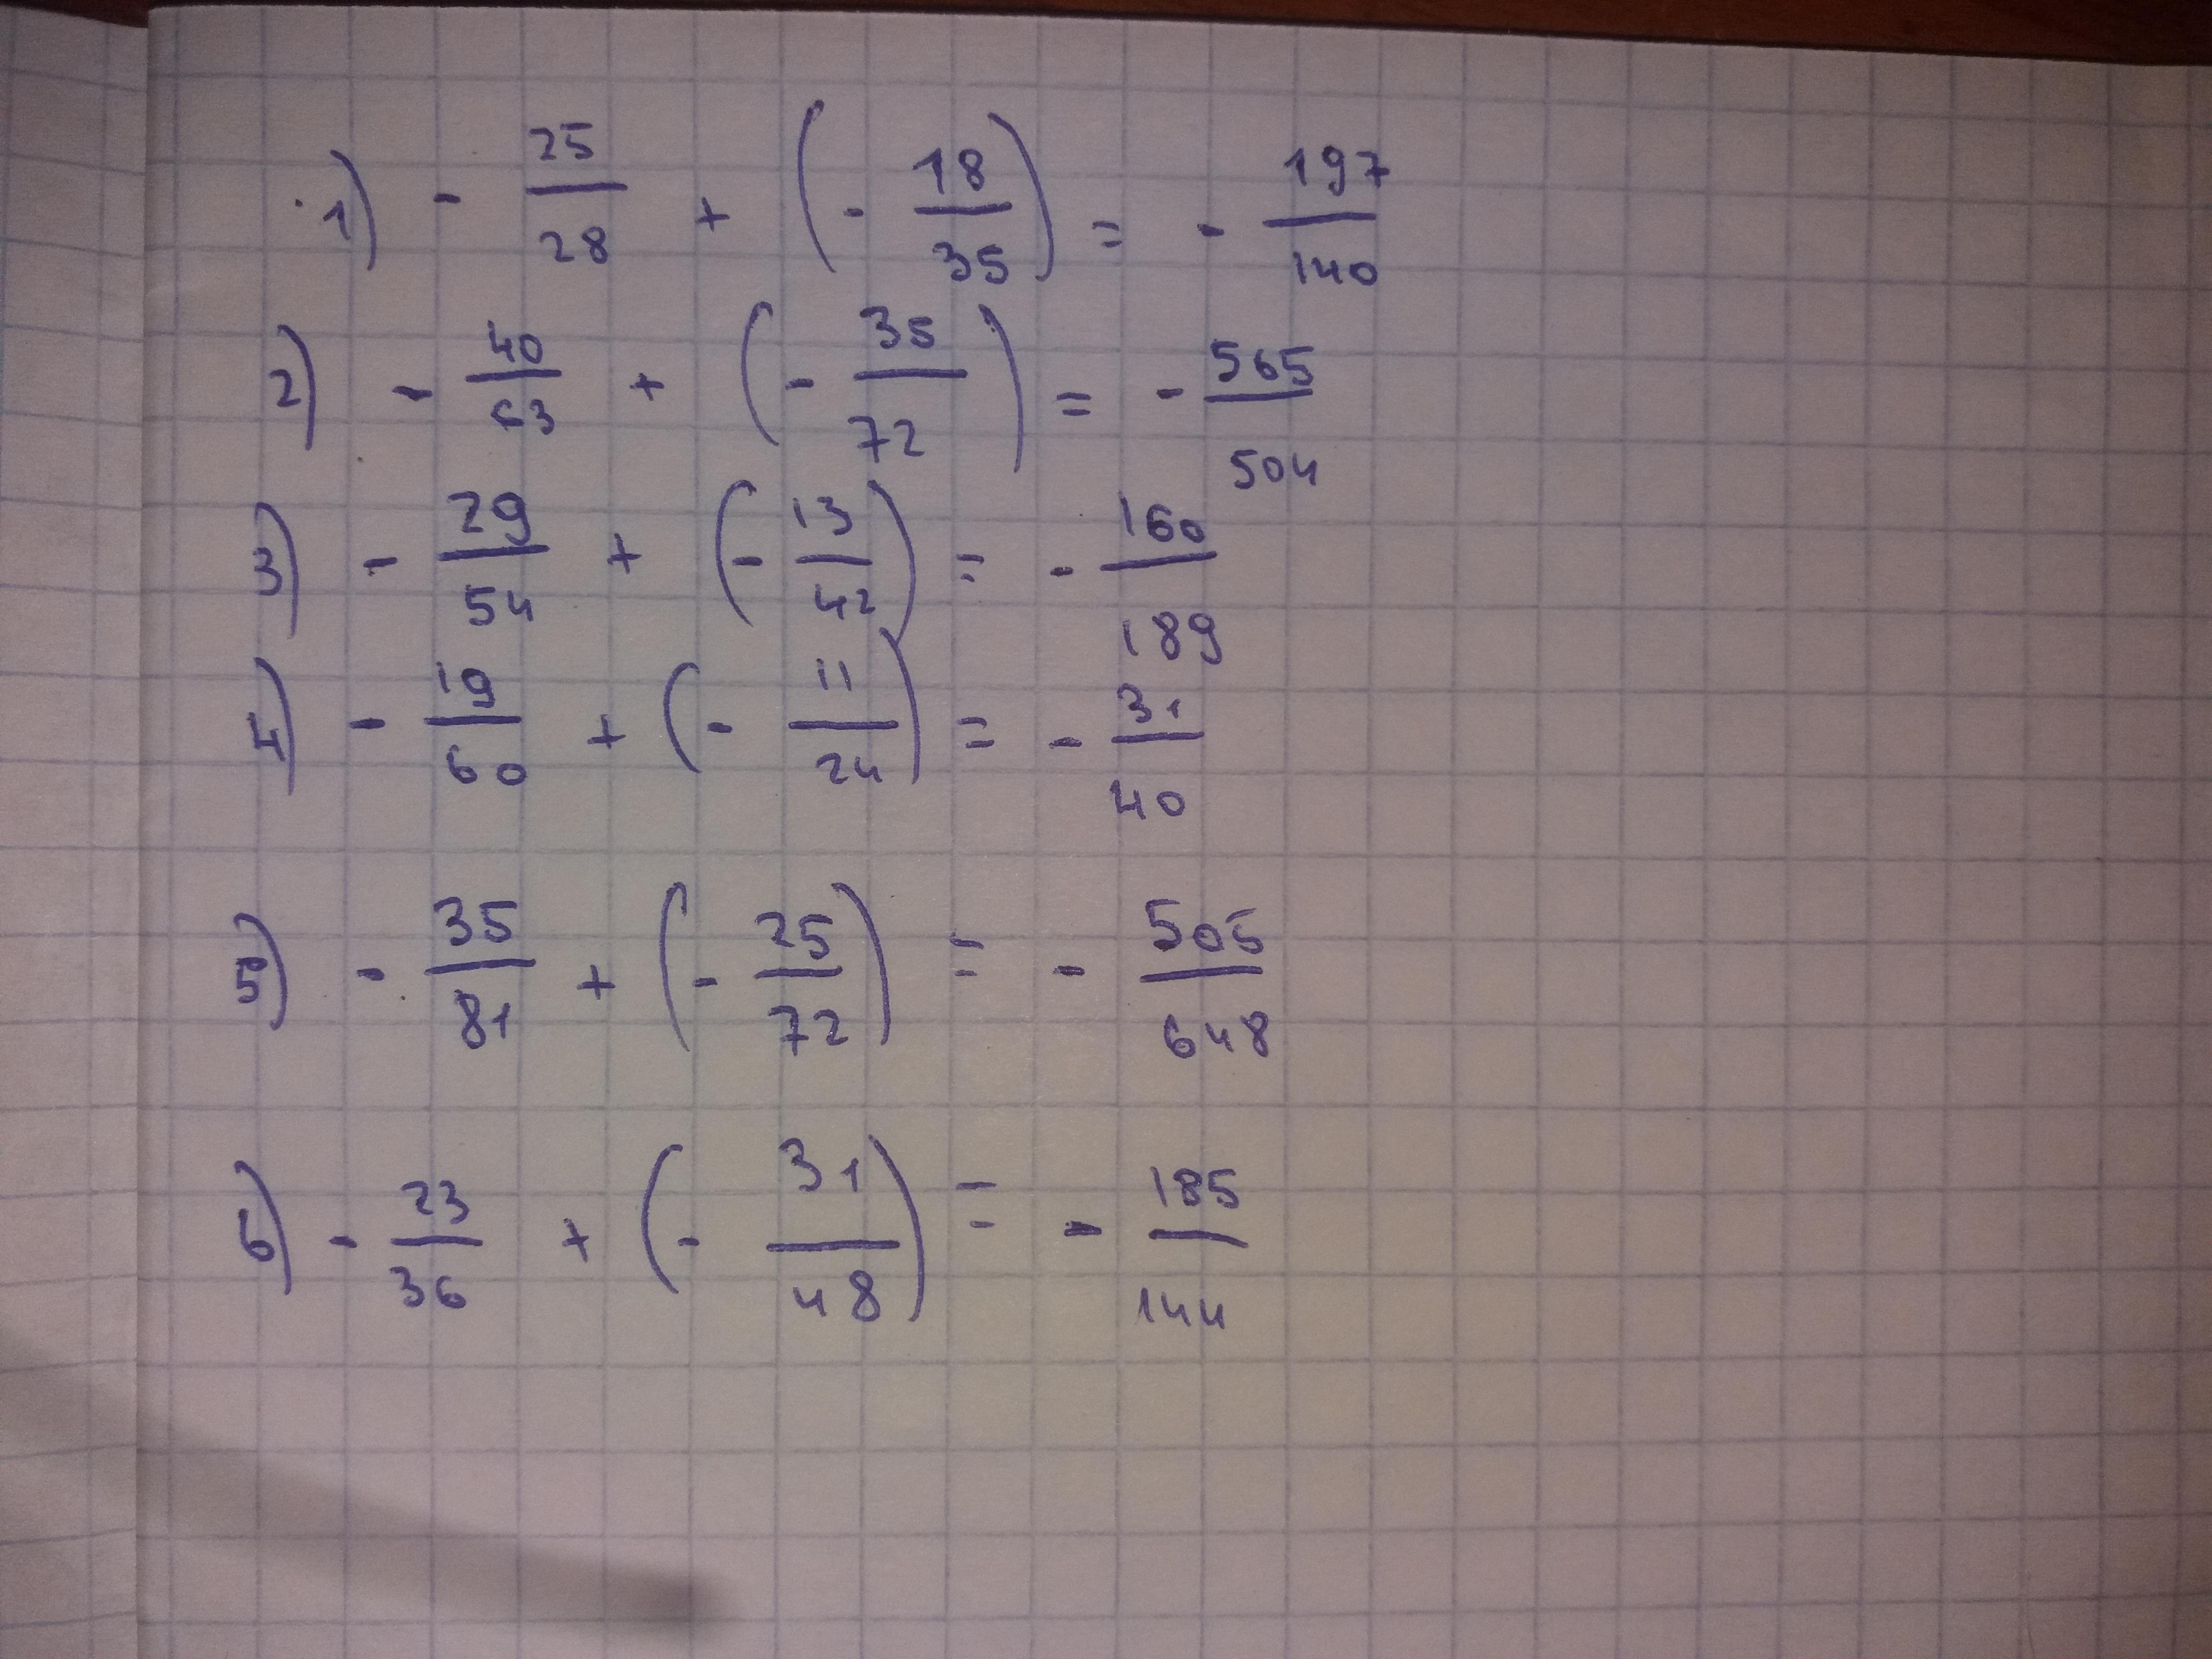 1) - 25/28 + (- 18/35) = - 197/140
2) - 40/63 + (- 35/72) = - 565/504
3) - 29/54 + (- 13/42) = - 160/189
4) - 19/60 + (- 11/24) = - 31/40
5) - 35/81 + (- 25/72) = - 505/648
6) - 23/36 + (- 31/48) = - 185/144